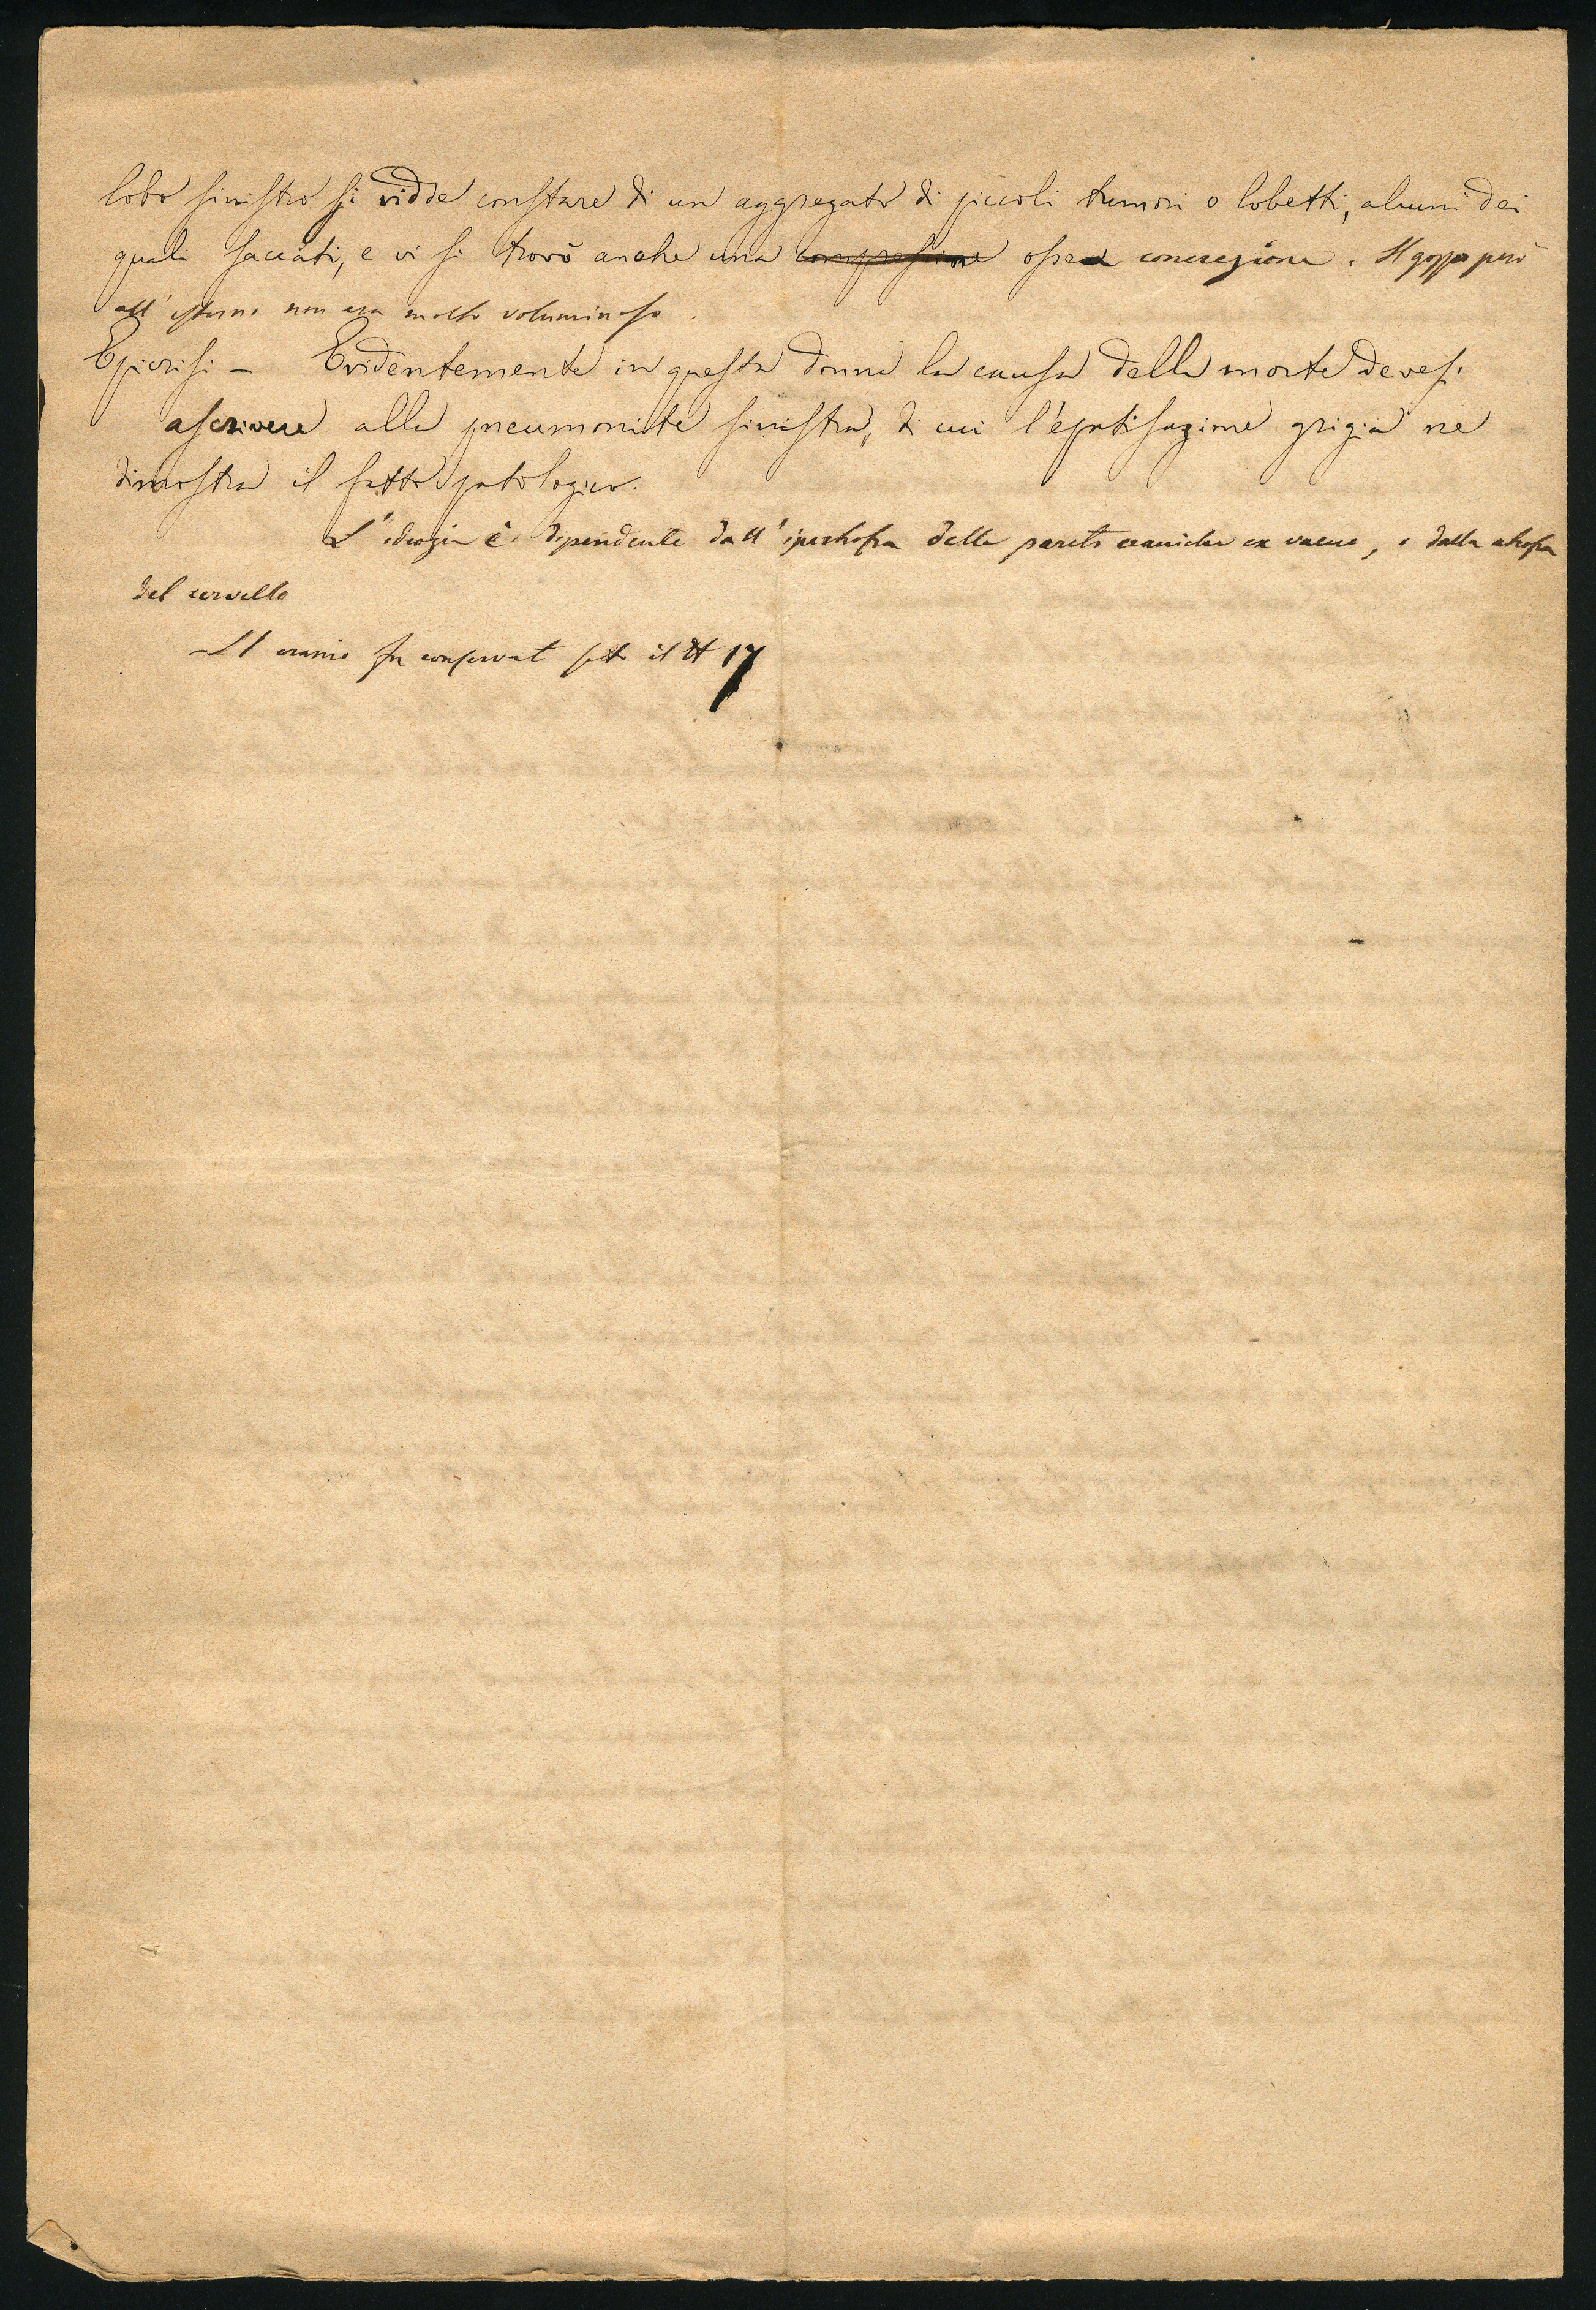 lobo sinistro si vidde constare di un aggregato di piccoli tumori o lobetti, alcuni dei
quali saccati, e vi si trovò anche una compressione ossea concrezione. Il gozzo però
all'esterno non era molto voluminoso.
Epicrisi – Evidentemente in questa donna la causa della morte devesi
ascrivere alla pneumonite sinistra, di cui l'epatisazione grigia ne
dimostra il fatto patologico.
L'idiozia è dipendente dall'ipertrofia delle pareti craniche ex vacuo, e dalla atrofia
del cervello
Il cranio fu conservato sotto il N 17